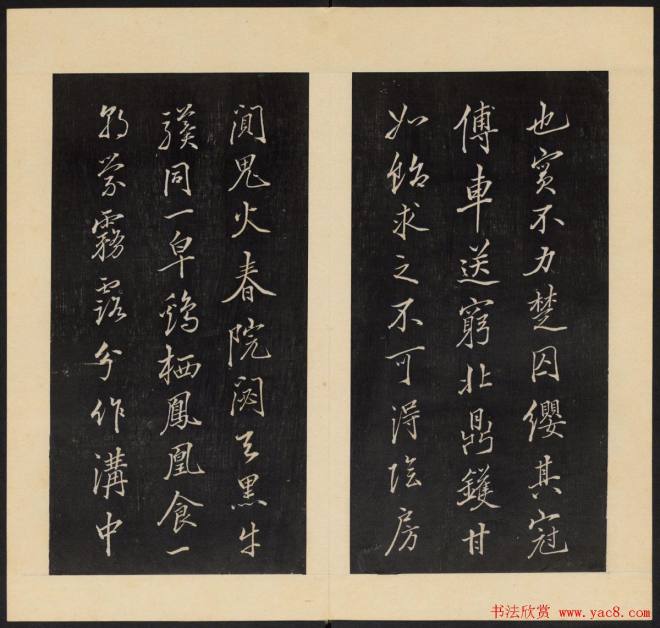 也實不力楚囚纓其冠
傳車送窮北鼎鑊甘
如飴求之不可得陰房
闃鬼火春院閟天黑牛
驥同一皁鷄栖鳳凰食一
朝蒙霧露分作溝中
书法欣赏 www.yac8.com